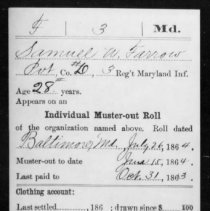 F 3 Md.
Samuel W. Farrow
Pvt., Co. D, 3 Reg't Maryland Inf.
Age 28 years.
Appears on an
Individual Muster-out Roll
of the organization named above. Roll dated
Baltimore, Md., July 26, 1864.
Muster-out to date June 15, 1864.
Last paid to Oct. 31, 1863
Clothing account:
Last settled 186 ; drawn since $ 100